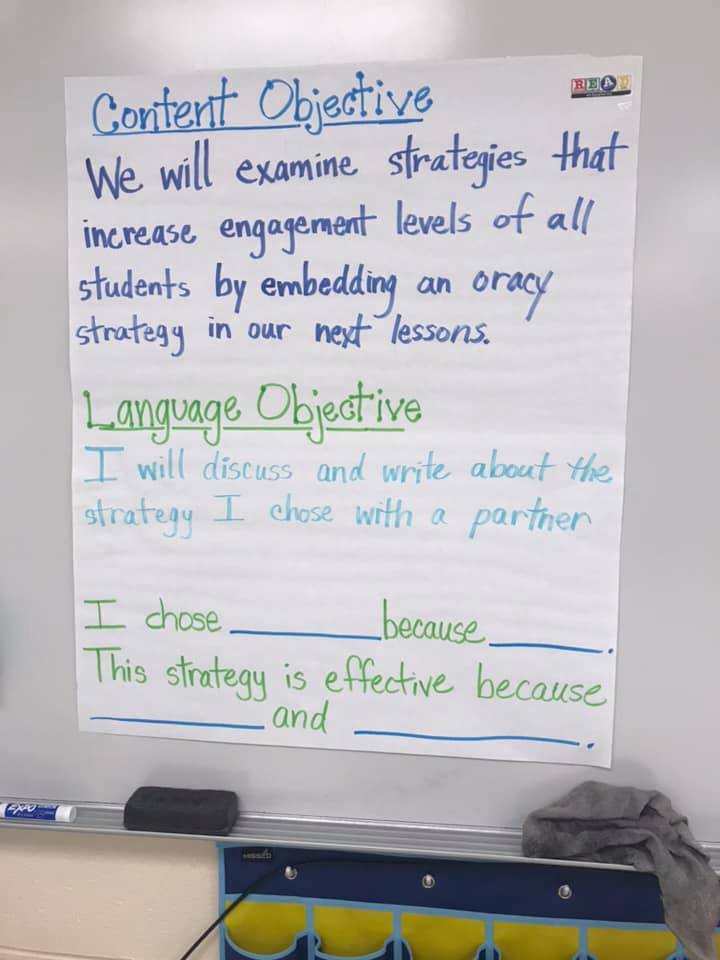 READ
Content Objective
We will examine strategies that
increase engagement levels of all
students by embedding an oracy
strategy in our next lessons.
Language Objective
I will discuss and write about the
strategy I chose with a partner
I chose __________ because ________.
This strategy is effective because
____________ and ______________.
EXPO